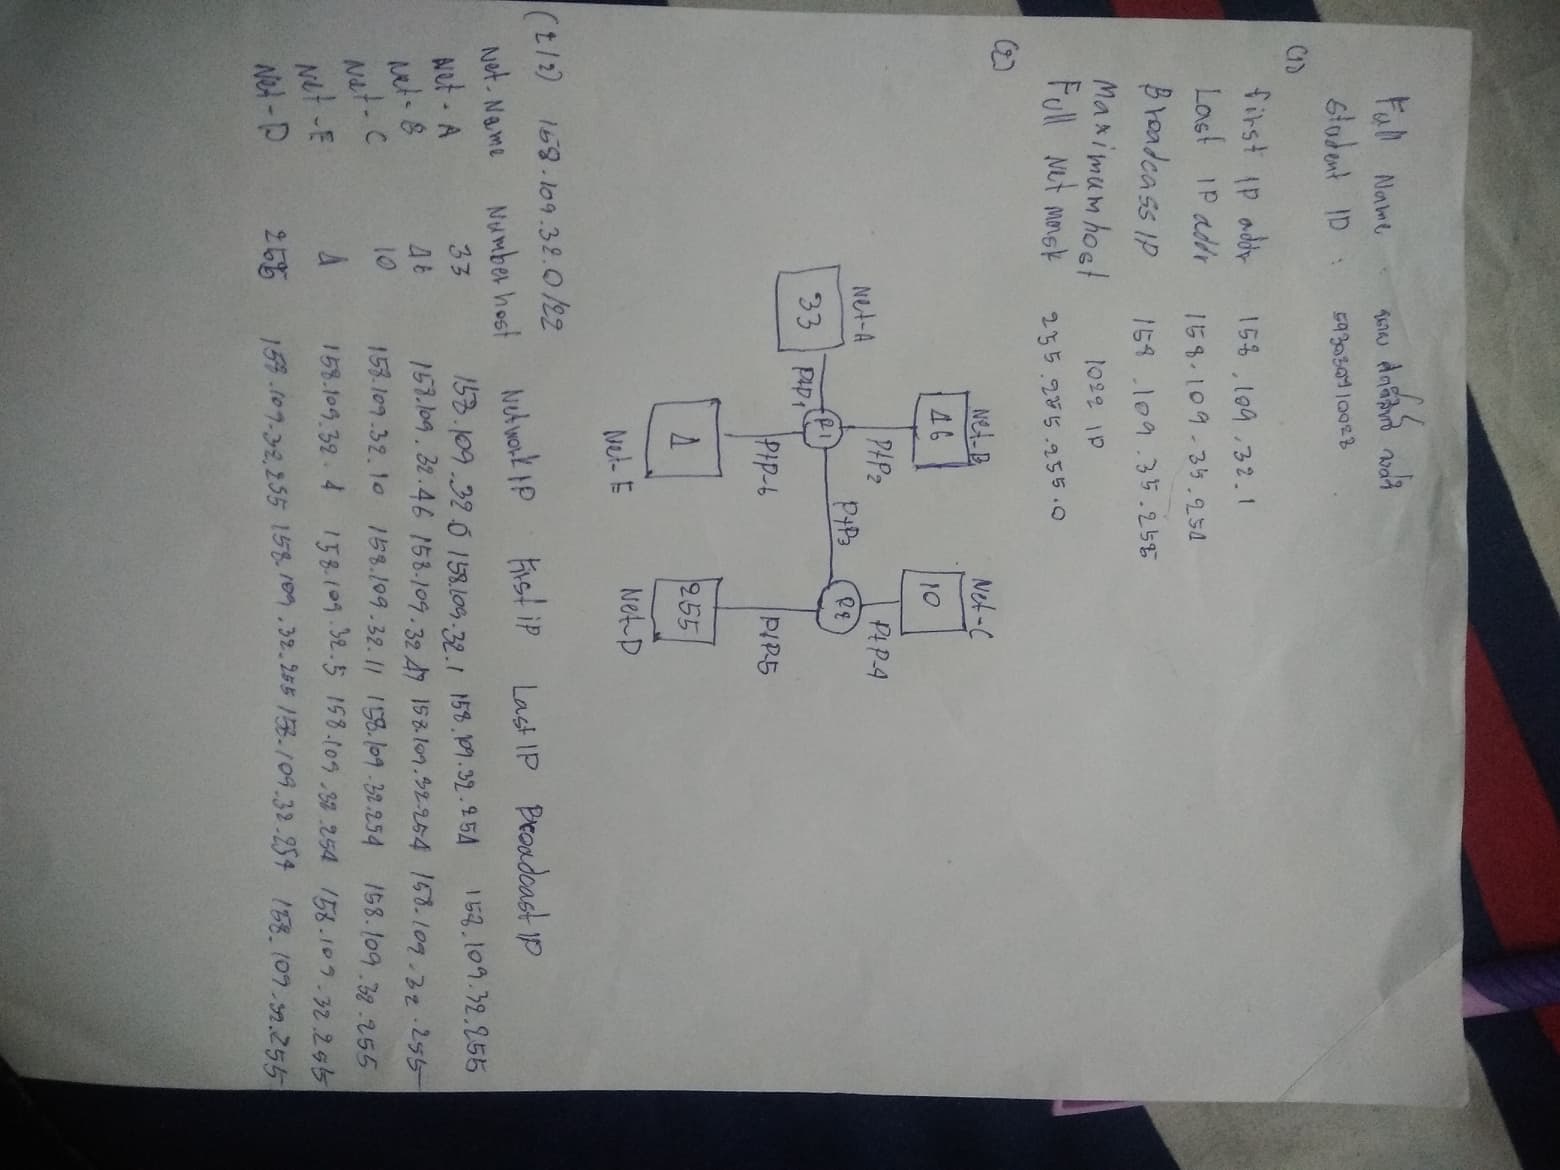 Full Name : ศักดิ์สิทธิ์
Student ID : 593030710022
(1)
First IP addr 158.109.32.1
Last IP addr 158.109.35.254
Broadcass IP 158.109.35.255
Maximum host 1022 IP
Full Net mask 255.255.255.0
(2)
Net-A Net-B Net-C
33 46 10
PtP1 PtP2 PtP3 PtP-4
R1 R2
PtP-6 PtP-5
4 255
Net-E Net-D
(2/2) 158.109.32.0/22
Net-Name Number host Network IP First IP Last IP Broadcast IP
Net-A 33 158.109.32.0 158.109.32.1 158.109.32.254 158.109.32.255
Net-B 46 158.109.32.46 158.109.32.47 158.109.32.254 158.109.32.255
Net-C 10 158.109.32.10 158.109.32.11 158.109.32.254 158.109.32.255
Net-E 4 158.109.32.4 158.109.32.5 158.109.32.254 158.109.32.255
Net-D 255 158.109.32.255 158.109.32.255 158.109.32.254 158.109.32.255